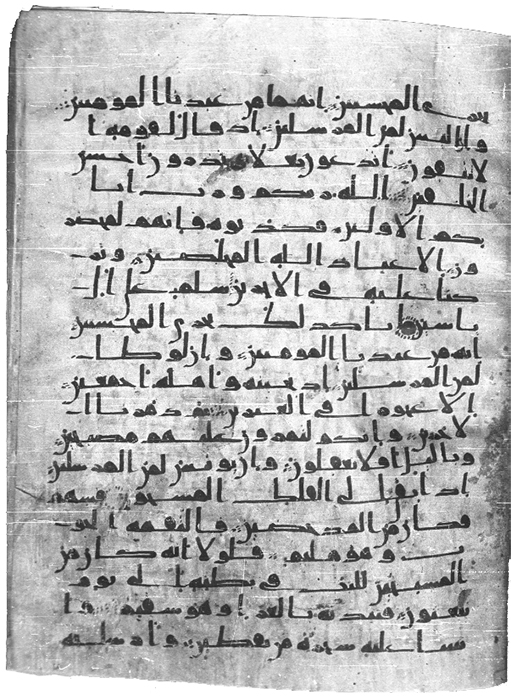 نجزي المحسنين انهما من عبدنا المومنين
وان الياس لمن المرسلين اذ قال لقومه ا
لا تتقون اتدعون بعلا وتذرون احسن
الخلقين الله ربكم ورب ابا
يكم الاولين فكذبوه فانهم لمحضر
ون الا عباد الله المخلصين وتر
كنا عليه في الاخرين سلم على ال
ياسين انا كذلك نجزي المحسنين
انه من عبدنا المومنين وان لوطا
لمن المرسلين اذ نجينه واهله اجمعين
الا عجوزا في الغبرين ثم دمرنا ا
لاخرين وانكم لتمرون عليهم مصبحين
وباليل افلا تعقلون وان يونس لمن المرسلين
اذ ابق الى الفلك المشحون فسهم
فكان من المدحضين فالتقمه الحو
ت وهو مليم فلولا انه كان من
المسبحين للبث في بطنه الى يوم
يبعثون فنبذنه بالعرا وهو سقيم وا
نبتنا عليه شجرة من يقطين وارسلنه